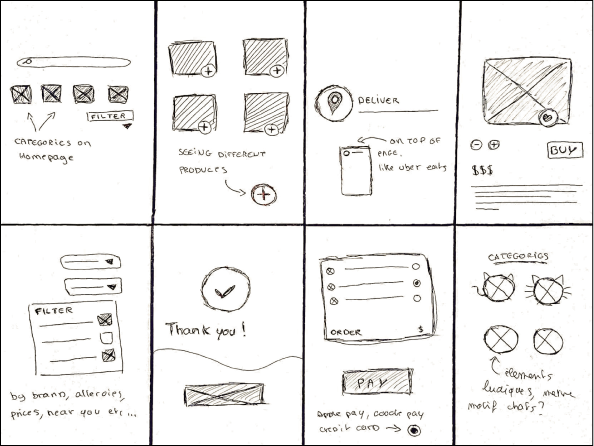 FILTER
CATEGORIES on
Homepage
SEEING DIFFERENT
PRODUCTS
DELIVER
ON TOP OF
PAGE.
like uber eats
BUY
$$$
FILTER
by brand, allergies,
prices, near you etc...
Thank you!
ORDER $
PAY
apple pay, google pay
credit card
CATEGORIES
éléments
ludiques, même
motif chats?